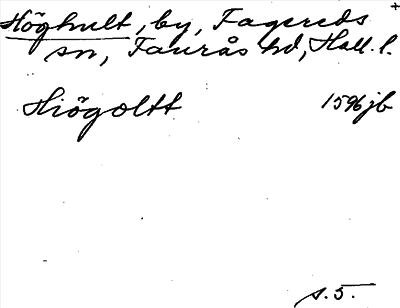 Höghult, by, Fagereds
sn, Faurås hd, Hall. l.
Hiögoltt 1596 jb
s. 5.